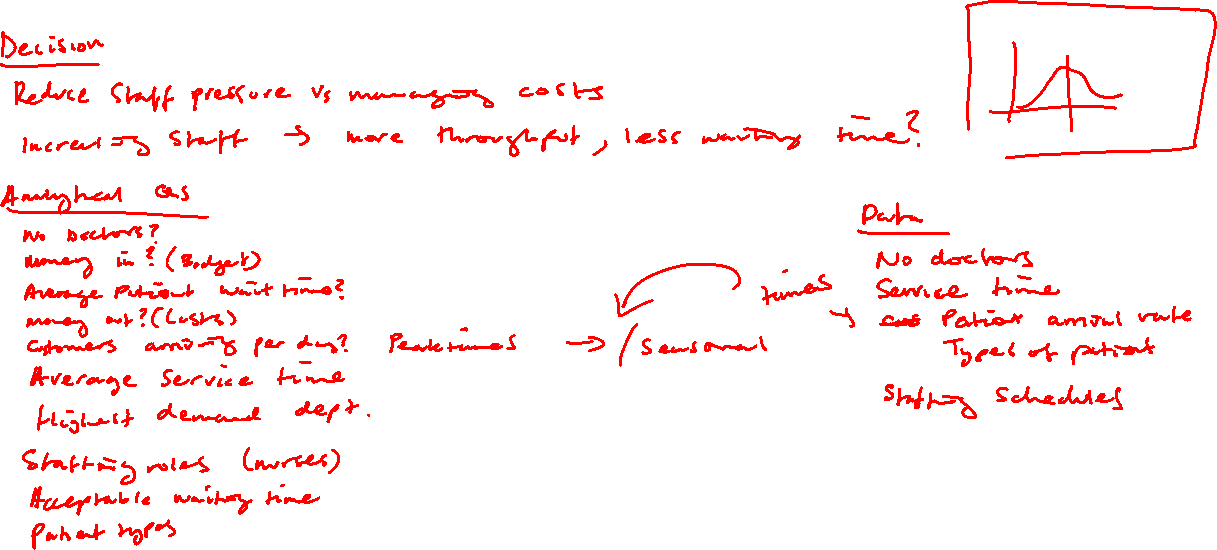 Decision
Reduce Staff pressure vs managing costs
Increasing Staff → more throughput, less waiting time?
Analytical Qns
No Doctors?
Money in? (Budget)
Average Patient wait time?
Money out? (Costs)
Customers arriving per day? Peak times → / Seasonal
times
Average Service time
Highest demand dept.
Staffing roles (nurses)
Acceptable waiting time
Patient types
Data
No doctors
Service time
→ Patient arrival rate
Types of patient
Staffing schedules